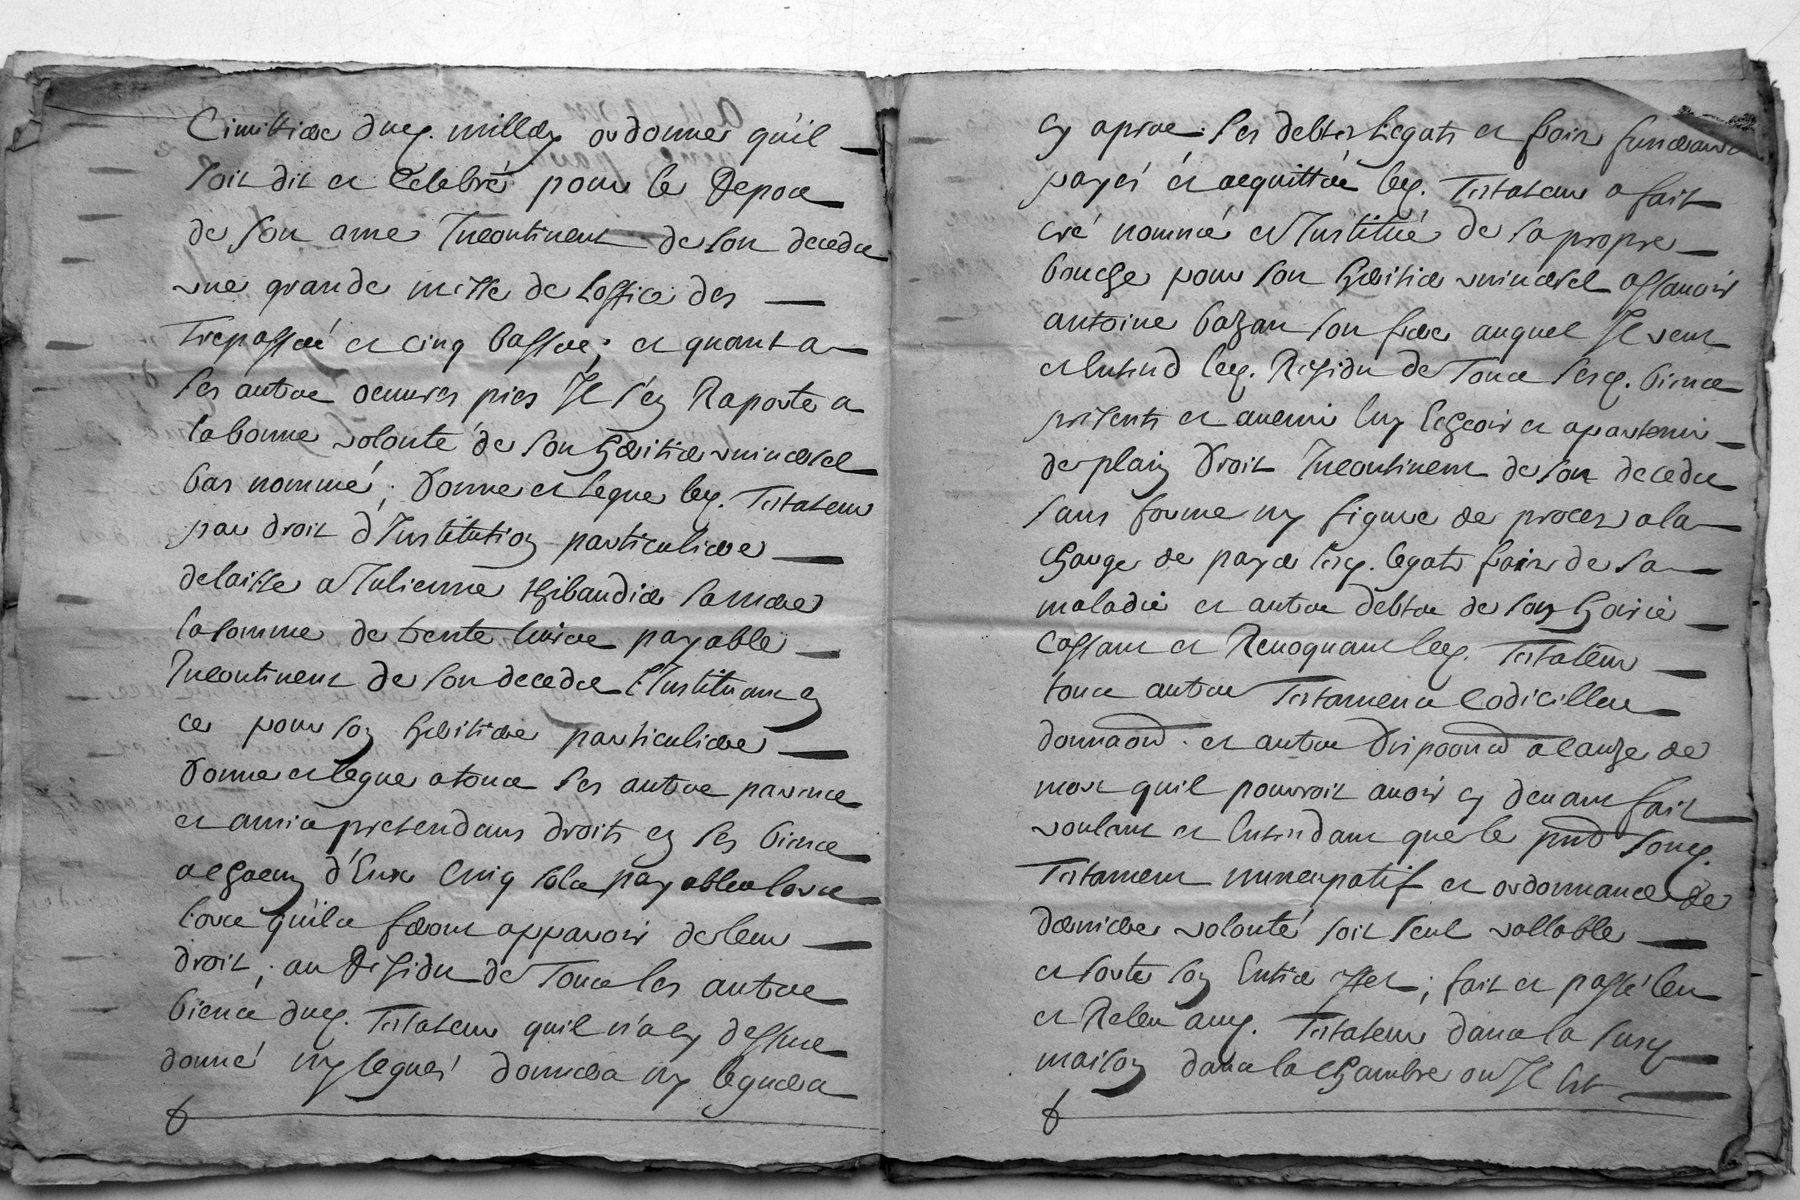 Cimittiere dud. millay ordonne qu'il
soit dit et celebré pour le Repos
de son ame Incontinent de son deceds
une grande messe de loffice des
Trepassés et cinq basses; et quant a
ses autres oeuvres pies Il s'en Raporte a
la bonne volonté de son heritier universel
bas nommé; Donne et legue led. Testateur
par droit d'Institution particuliere
delaisse a Julienne sa mere
la somme de trente livres payable
Incontinent de son deceds l'Instituant en
ce pour son heritiere particuliere
Donne et legue a tous ses autres parents
et amis pretendans droits en ses biens
a chacun d'Eux Cinq sols payables lors
lors qu'ils feront apparoir de leur
droit; au Residu de Tous les autres
biens dud. Testateur quil n'a cy dessus
donné ny legué donnera ny leguera
cy apres; ses debtes legats et frais funeraires
payés et acquittés led. Testateur a fait
créé nommé et Institué de sa propre
bouche pour son heritier universel assavoir
antoine bazan son frere auquel Il veut
et Entend led. Residu de Tous sesd. biens
presents et avenir luy Echeoir et apartenir
de plain droit Incontinent de son deceds
sans forme ny figure de proces a la
charge de payer lesd. legats frais de sa
maladie et autres debtes de son hoirie
Cassant et Revoquant led. Testateur
tous autres Testaments Codicilles
donnaons. et autres Dispoons a cause de
mort quil pourroit avoir cy devant fait
voulant et Entendant que le pnt soud.
Testament nuncupatif et ordonnance de
derniere volonté soit seul vallable
et sorte son Entier effet; fait et passé leu
et Releu aud. Testateur dans la susd.
maison dans la chambre ou Il lit